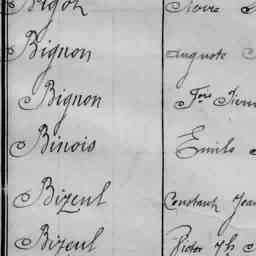 Bignon Auguste
Bignon Fois
Binois Emile
Bizeul Constant Jean
Bizeul Victor